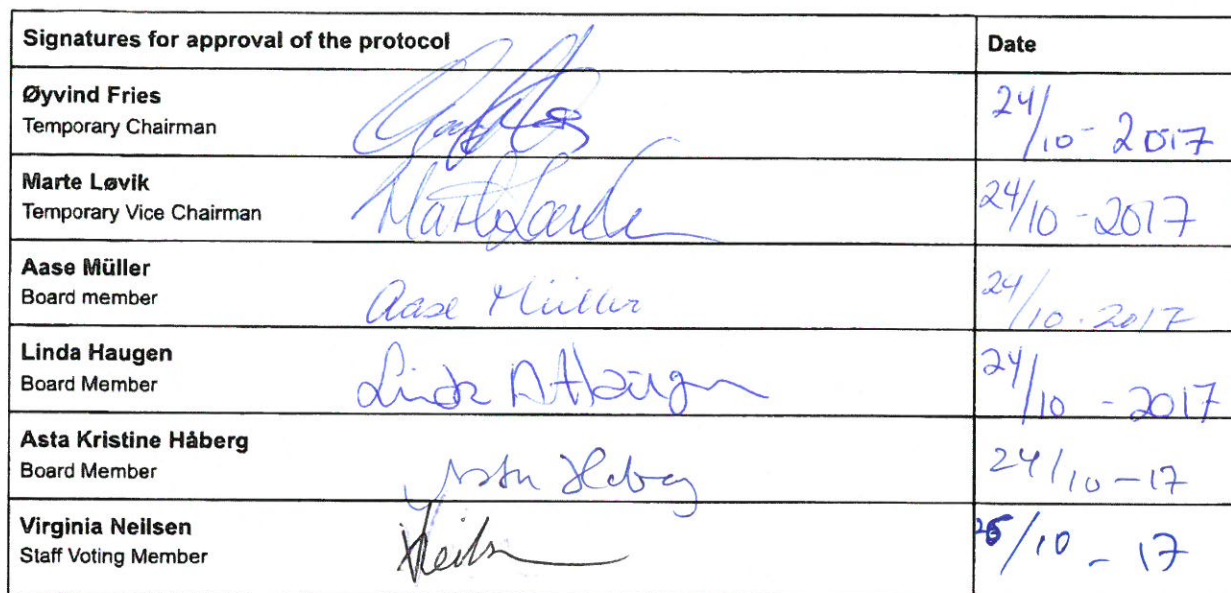 Signatures for approval of the protocol Date
Øyvind Fries
Temporary Chairman
24/10-2017
Marte Løvik
Temporary Vice Chairman
24/10-2017
Aase Müller
Board member
Aase Müller
24/10.2017
Linda Haugen
Board Member
Linda A Haugen
24/10-2017
Asta Kristine Håberg
Board Member
Asta Håberg
24/10-17
Virginia Neilsen
Staff Voting Member
/10-17